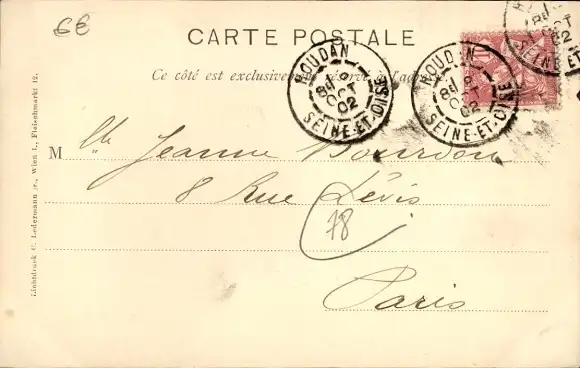 6€
CARTE POSTALE
Ce côté est exclusivement réservé à l'adresse
HOUDAN
8 OCT 02
SEINE-ET-OISE
HOUDAN
8 OCT 02
SEINE-ET-OISE
OCT 02
SEINE-ET-
Mlle Jeanne Bourdon
8 Rue Lévis
78
Paris
Lichtdruck C. Ledermann jr., Wien I., Fleischmarkt 12.